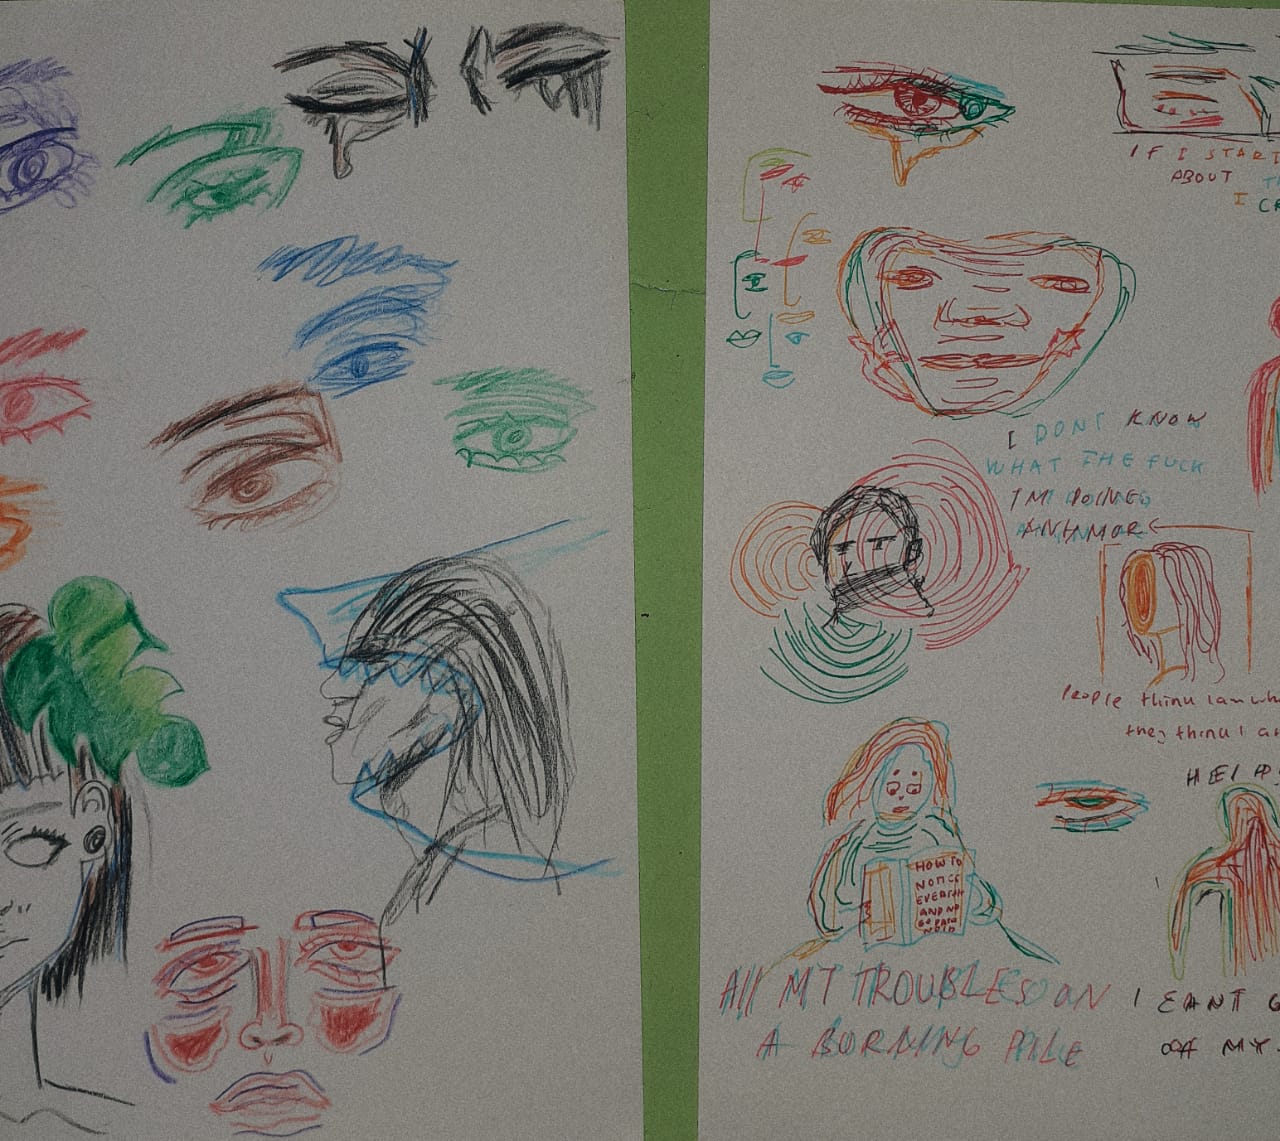 IF I START
ABOUT
I
I DONT KNOW
WHAT THE FUCK
IM DOING
ANYMORE
People think I am
they think I
HOW TO
NOTICE
AND NO
All MY TROUBLES ON
A BORNING PILE
I CANT
OF MY